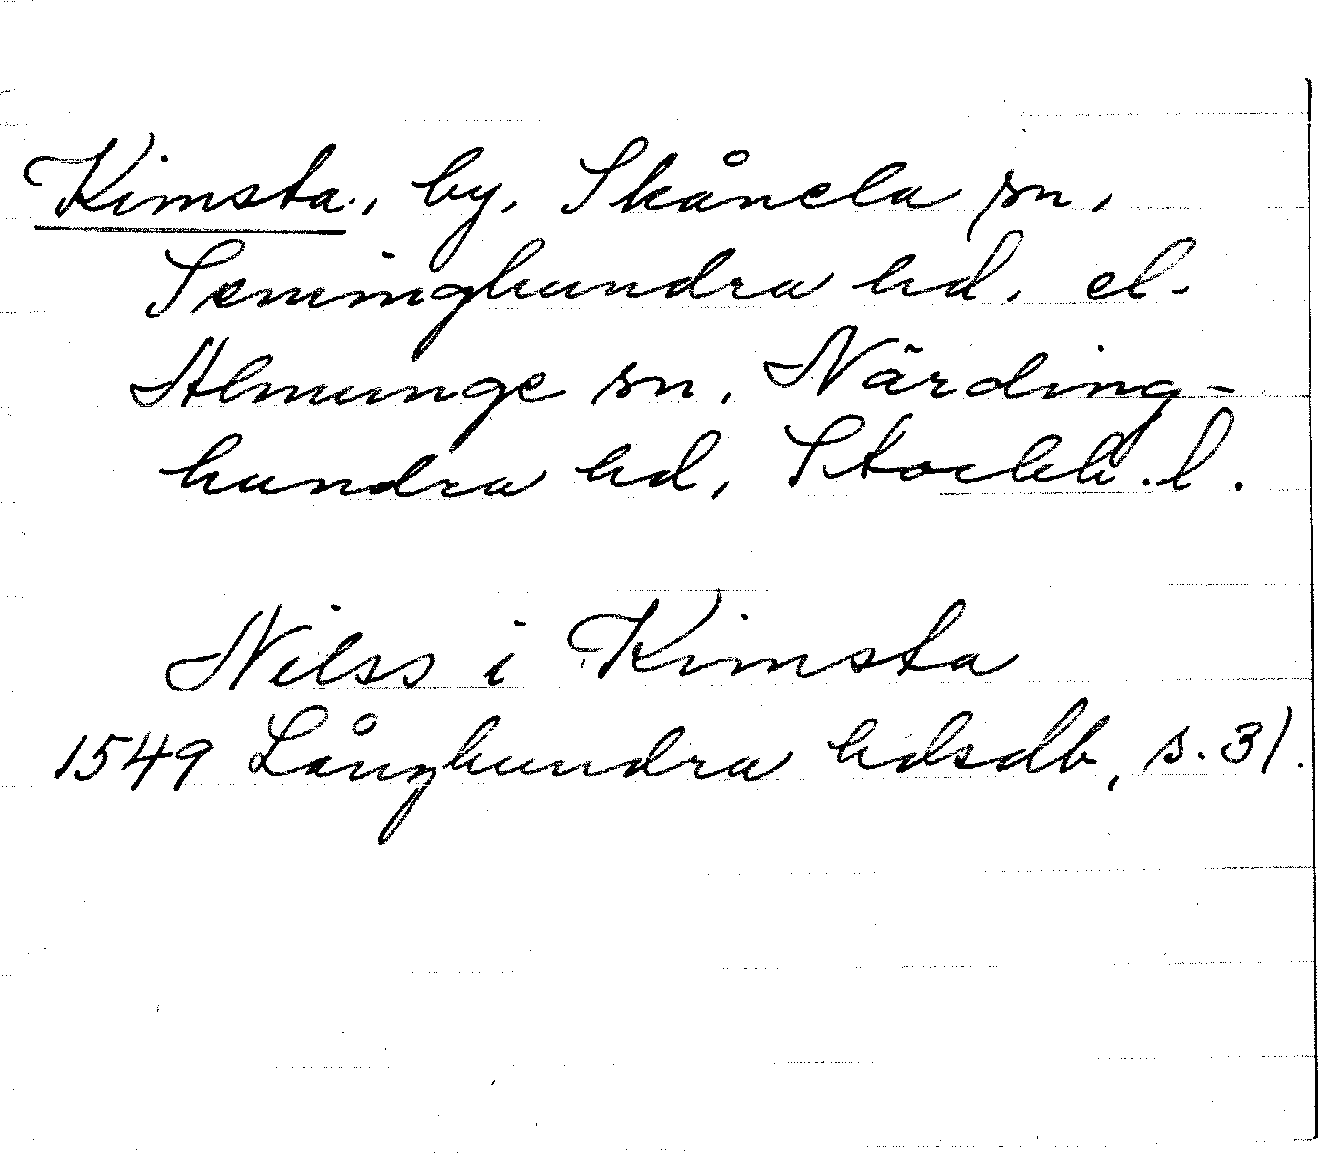 Kimsta, by, Skånela sn,
Seminghundra hd, el.
Almunge sn, Närding-
hundra hd, Stockh. l.
Nilss i Kimsta
1549 Långhundra hdsdb, s. 31.